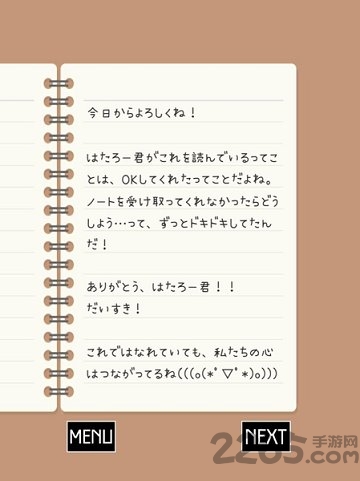 今日からよろしくね！
はたろー君がこれを読んでいるってこ
とは、OKしてくれたってことだよね。
ノートを受け取ってくれなかったらどう
しよう…って、ずっとドキドキしてたん
だ！
ありがとう、はたろー君！！
だいすき！
これではなれていても、私たちの心
はつながってるね(((o(*ﾟ▽ﾟ*)o)))
MENU
NEXT
2265手游网
2265.COM